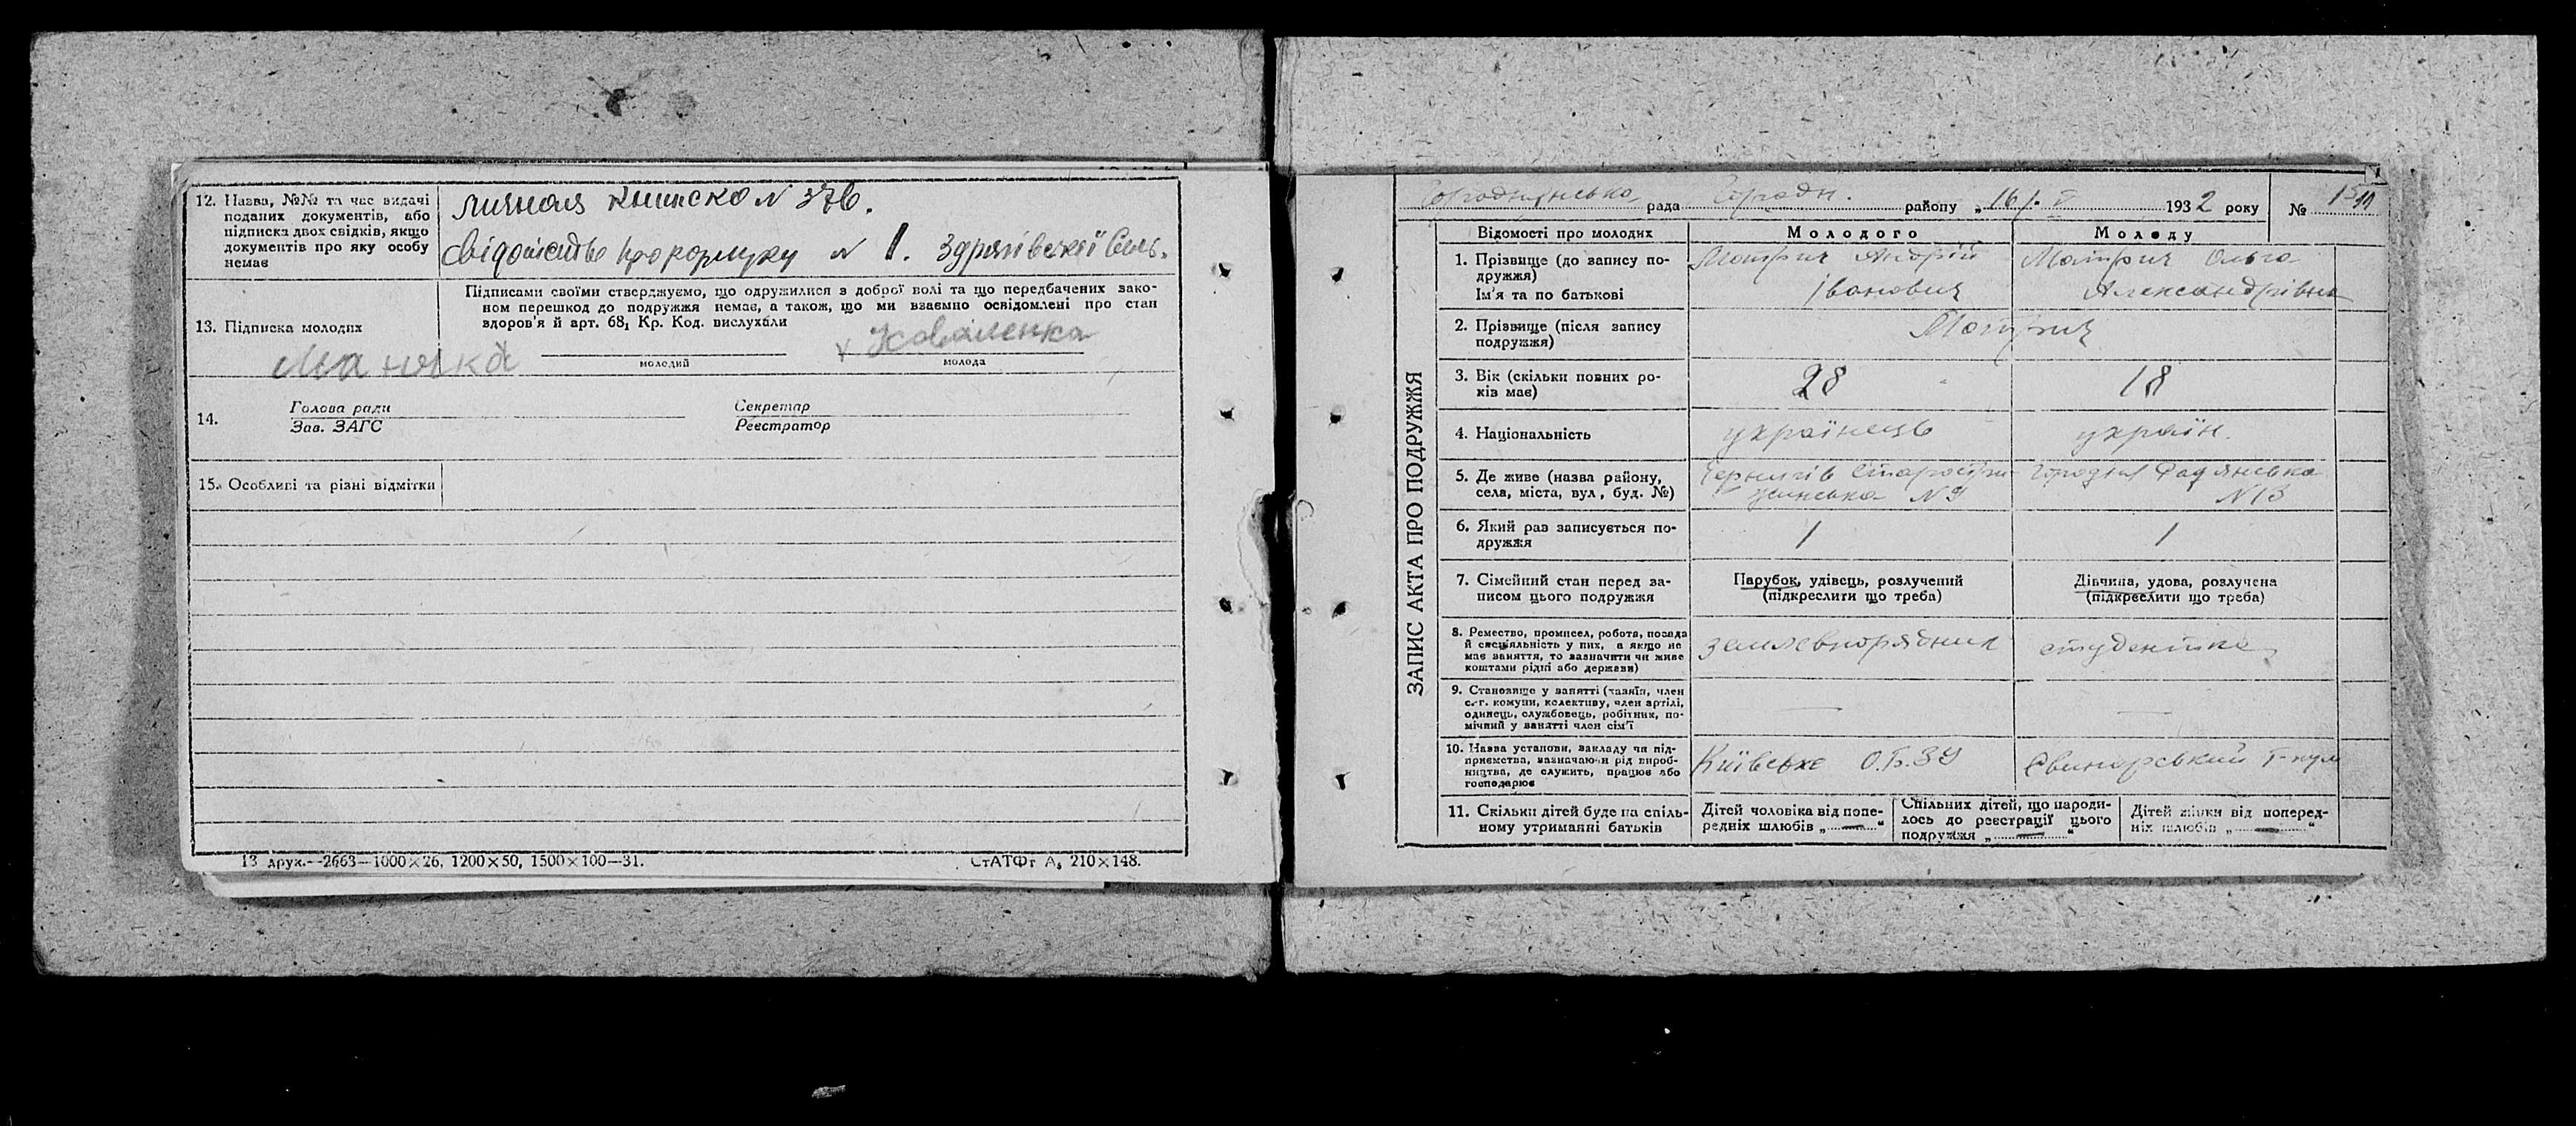 12. Назва, №№ та час видачі
поданих документів, або
підписка двох свідків, якщо
документів про яку особу
немає
личная книжка N 376.
Свідоцтво про кормуку N 1. Здрягівської Сель.
13. Підписка молодих
Підписами своїми стверджуємо, що одружилися з доброї волі та що передбачених зако-
ном перешкод до подружжя немає, а також, що ми взаємно освідомлені про стан
здоров'я й арт. 68₁ Кр. Код. вислухали
v Коваленка
молодий
молода
14.
Голова ради
Зав. ЗАГС
Секретар
Реєстратор
15. Особливі та різні відмітки
13 друк.—2663—1000×26, 1200×50, 1500×100—31.
СтАТФт А₅ 210×148.
ЗАПИС АКТА ПРО ПОДРУЖЖЯ
Городнянська рада Городн. району „16/. V 1932 року
№
Відомості про молодих
Молодого
Молоду
1. Прізвище (до запису по-
дружжя)
Ім'я та по батькові
Матрич Андрій
Іванович
Матрич Ольга
Александрівна
2. Прізвище (після запису
подружжя)
Матрич
3. Вік (скільки повних ро-
ків має)
28
18
4. Національність
українець
україн.
5. Де живе (назва району,
села, міста, вул, буд. №)
Чернигів
N 9
Городня Радянська
N 13
6. Який раз записується по-
дружжя
1
1
7. Сімейний стан перед за-
писом цього подружжя
Парубок, удівець, розлучений
(підкреслити що треба)
Дівчина, удова, розлучена
(підкреслити що треба)
8. Ремество, промисел, робота, посада
й спеціяльність у них, а якщо не
має заняття, то зазначити чи живе
коштами рідні або держави)
землевпорядник
студентка
9. Становище у занятті (хазяїн, член
с.-г. комуни, колективу, член артілі,
одинець, службовець, робітник, по-
мічний у занятті член сім'ї
10. Назва установи, закладу чи під-
приємства, зазначаючи рід вироб-
ництва, де служить, працює або
господарює
Київське О.Б.ЗУ
11. Скільки дітей буде на спіль-
ному утриманні батьків
Дітей чоловіка від попе-
редніх шлюбів „ — “
Спільних дітей, що народи-
лось до реєстрації цього
подружжя „ — “
Дітей жінки від поперед-
ніх шлюбів „ — “